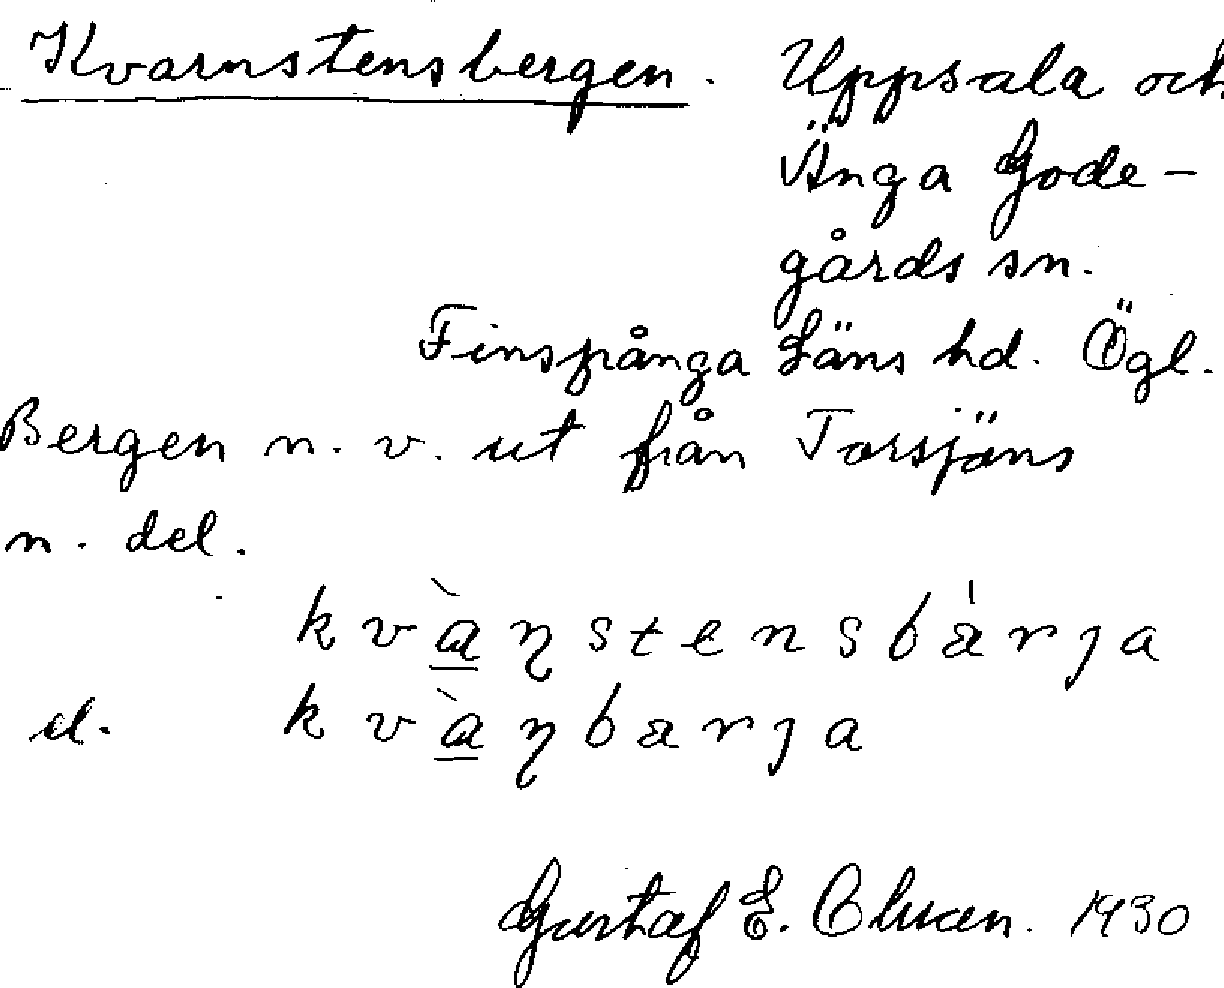 Kvarnstensbergen. Uppsala och
Änga Gode-
gårds sn.
Finspånga Läns hd. Ögl.
Bergen n. v. ut från Torsjöns
n. del.
kvàŋstensbárja
el. kvàŋbarja
Gustaf E. 1930